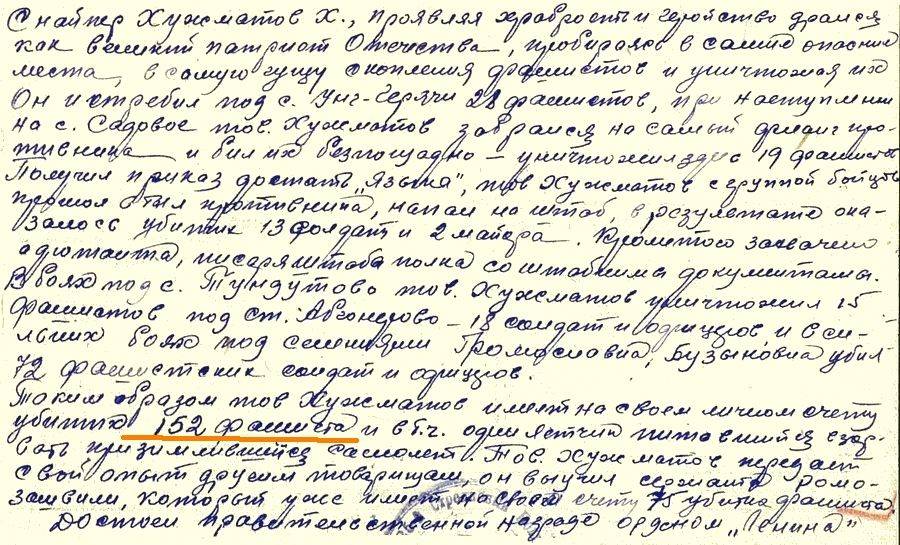 Снайпер Хужматов Х., проявляя храбрость и геройство дрался
как великий патриот Отечества, пробираясь в самые опасние
места, в самую гущу скопления фашистов и уничтожая их
Он истребил под с. Унг-Терячи 28 фашистов, при наступлении
на с. Садовое тов. Хужматов забрался на самый фланг про-
тивника и бил их безпощадно – уничтожил здес 19 фашистов
Получил приказ достать "языка", тов Хужматов с группой бойцов
прошол в тыл противника, напал на штаб, в результате ока-
залось убитых 13 солдат и 2 майора. Кроме того захвачено
адютанта, писаря штаба полка со штабными документами.
В боях под с. Тундутово тов. Хужматов уничтожил 15
фашистов под ст. Абганерово – 18 солдат и офицеров и в си-
льних боях под селениями Громославка, Бузыновка убил
72 фашистских солдат и офицеров.
Таким образом тов Хужматов имеет на своем личном счету
убитых 152 фашиста и в т.ч. один летчик пытавшийся взор-
вать приземлившийся самолет. Тов. Хужматов передает
свой опыт другим товарищам, он выучил сержанта
который уже имеет на своем счету 75 убитых фашиста.
Достоен правительственной награде орденом "Ленина"